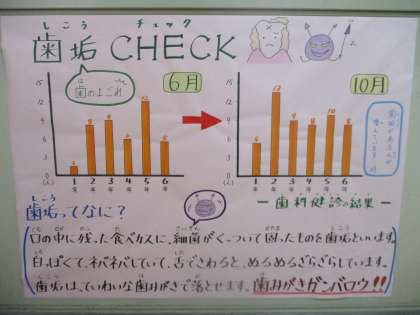 しこう チェック
歯垢 CHECK
は
歯のよごれ
6月
10月
15
12
9
6
3
(人)
1年 2年 3年 4年 5年 6年
15
12
9
6
3
(人)
1年 2年 3年 4年 5年 6年
しこう
歯垢ってなに？
ー歯科健診の結果ー
口の中に残った食べカスに、細菌がくっついて固ったものを歯垢といいます。
白っぽくて、ネバネバしていて、舌でさわると、ぬるぬるざらざらしています。
歯垢は、ていねいな歯みがきで落とせます。歯みがきガンバロウ!!